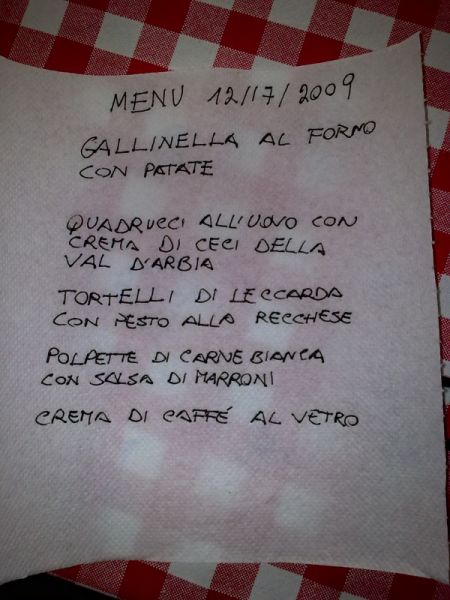 MENU 12/17/2009
GALLINELLA AL FORNO
CON PATATE
QUADRUCCI ALL'UOVO CON
CREMA DI CECI DELLA
VAL D'ARBIA
TORTELLI DI LECCARDA
CON PESTO ALLA RECCHESE
POLPETTE DI CARNE BIANCA
CON SALSA DI MARRONI
CREMA DI CAFFÉ AL VETRO